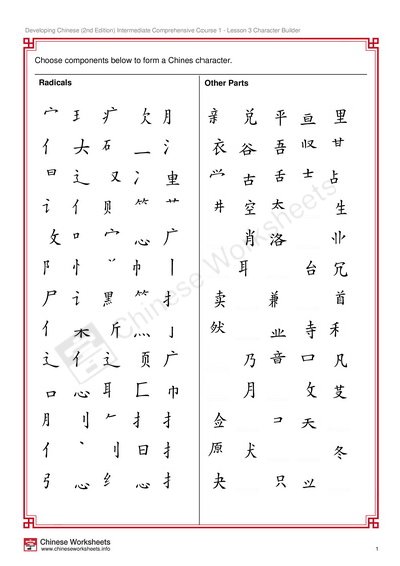 Developing Chinese (2nd Edition) Intermediate Comprehensive Course 1 - Lesson 3 Character Builder
Choose components below to form a Chines character.
Radicals
Other Parts
宀 王 疒 欠 月 亲 兑 平 亘 里
亻 大 石 一 氵 衣 谷 吾 収 甘
辶 又 冫 重 𭕄 古 舌 士 占
讠 亻 贝 ⺮ 艹 井 空 太 生
攵 口 宀 心 广 肖 洛 业
阝 忄 巾 丨 耳 台 冗
尸 讠 黑 ⺮ 扌 卖 兼 首
亻 木 斤 灬 亅 然 业 寺 禾
辶 亻 辶 页 广 乃 音 口 凡
口 心 耳 匚 巾 月 攵 芟
月 刂 𠂉 扌 扌 佥 天
亻 丶 刂 日 扌 原 犬 冬
弓 心 纟 心 扌 夬 只
Chinese Worksheets
Chinese Worksheets
www.chineseworksheets.info
1